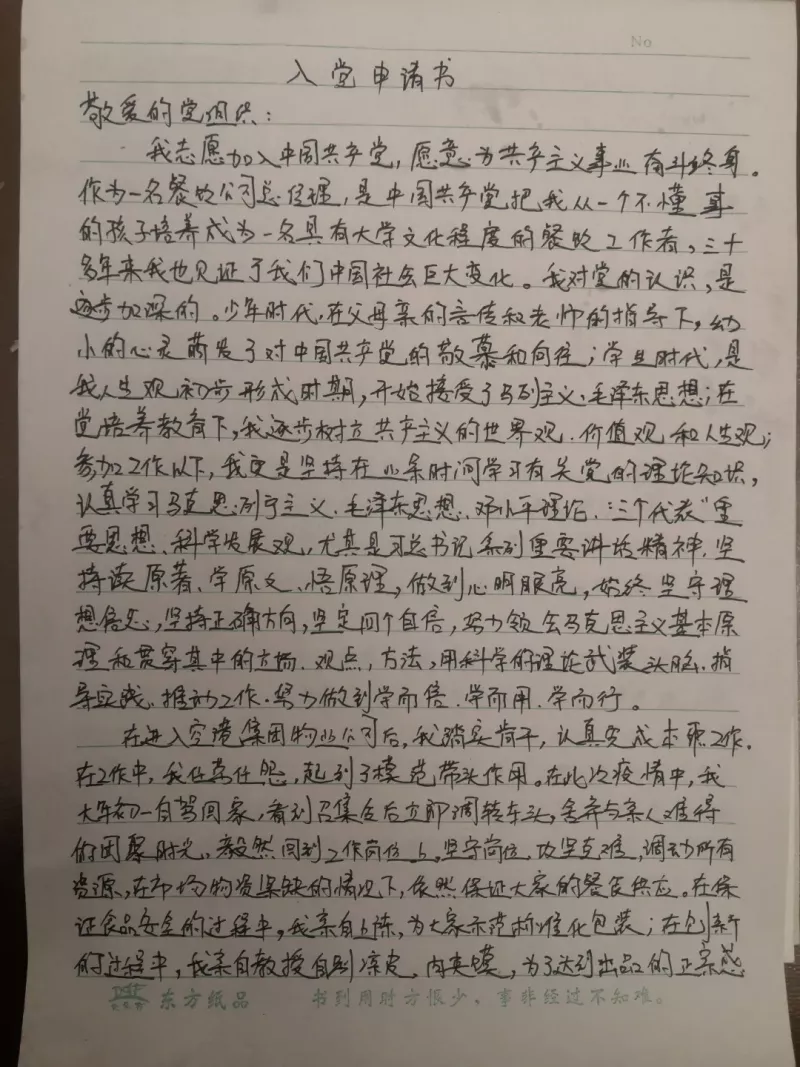 No
入党申请书
敬爱的党组织：
我志愿加入中国共产党，愿意为共产主义事业奋斗终身。
作为一名餐饮公司总经理，是中国共产党把我从一个不懂事
的孩子培养成为一名具有大学文化程度的餐饮工作者，三十
多年来我也见证了我们中国社会巨大变化。我对党的认识，是
逐步加深的。少年时代，在父母亲的言传和老师的指导下，幼
小的心灵萌发了对中国共产党的敬慕和向往；学生时代，是
我人生观初步形成时期，开始接受了马列主义、毛泽东思想；在
党培养教育下，我逐步树立共产主义的世界观、价值观和人生观；
参加工作以下，我更是坚持在业余时间学习有关党的理论知识，
认真学习马克思列宁主义、毛泽东思想、邓小平理论、“三个代表”重
要思想、科学发展观，尤其是习总书记系列重要讲话精神，坚
持读原著、学原文、悟原理，做到心明眼亮，始终坚守理
想信念，坚持正确方向，坚定四个自信，努力领会马克思主义基本原
理和贯穿其中的立场、观点，方法，用科学的理论武装头脑、指
导实践、推动工作。努力做到学而信、学而用、学而行。
在进入空港集团物业公司后，我踏实肯干，认真完成本职工作。
在工作中，我任劳任怨，起到了模范带头作用。在此次疫情中，我
大年初一自驾回家，看到召集令后立即调转车头，舍弃与亲人难得
的团聚时光，毅然回到工作岗位上，坚守岗位，攻坚克难，调动所有
资源，在市场物资紧缺的情况下，依然保证大家的餐食供应。在保
证食品安全的过程中，我亲自上阵，为大家示范标准化包装；在创新
的过程中，我亲自教授自制凉皮，肉夹馍，为了达到出品的正宗感
东方纸品 书到用时方恨少，事非经过不知难。